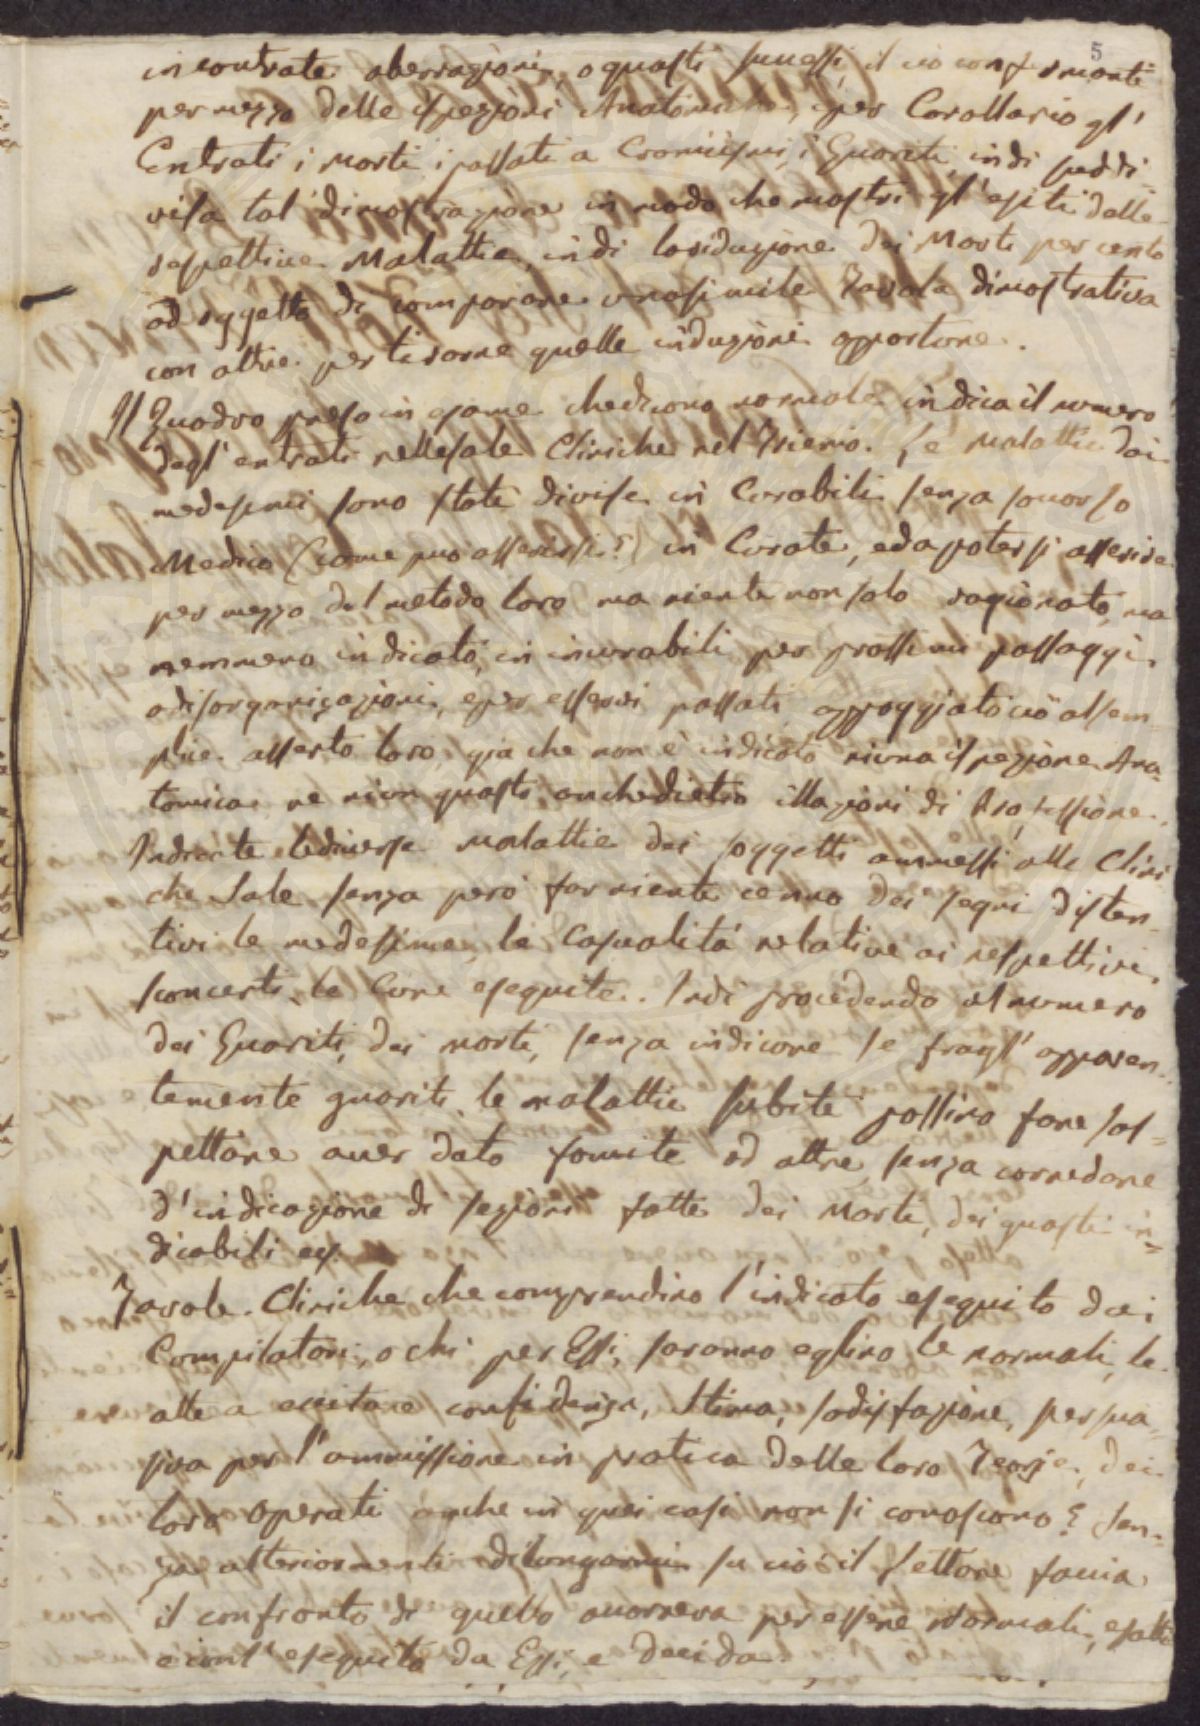 5
incontrate aberrazioni, o guasti successi, il ciò confermanti
per mezzo delle ispezioni Anatomiche, e per Corollario gl'
Entrati i Morti i passati a Cronicismi, i Guariti, indi suddi-
visa tal dimostrazione in modo che mostri gl'esiti delle
respettive Malattie, indi la riduzione dei Morti per cento
ad oggetto di Comparare una simile Tavola dimostrativa
con altre per tirarne quelle induzioni opportune.
Il Quadro preso in esame che dicono normale indica il numero
degl'entrati nelle sale Cliniche nel Trienio. Le Malattie dai
medesimi sono state divise in Curabili senza soccorso
Medico (come può asserirsi?) in Curate, ed a potersi asserire
per mezzo del metodo loro ma niente non solo ragionato, ma
nemmeno indicato, in incurabili per prossimi passaggi
a disorganizazioni, e per esservi passati appoggiato ciò al sem-
plice asserto loro, già che non è indicato niuna ispezione Ana-
tomica ne niun guasto anche dietro illazioni di Professione.
Indicate le diverse Malattie dei soggetti ammessi alle Clini
che Sale senza però far niente cenno dei segni disten-
tivi le medesime, le Casualità relative ai respettivi
sconcerti, le Cure eseguite. Indi procedendo al numero
dei Guariti, dei morti, senza indicare se fragl'apparen-
temente guariti le malattie subite possino fare sos-
pettare aver dato fomite ad altre, senza corredare
d'indicazione di sezioni fatte dei Morti, dei guasti in-
dicabili
Tavole Cliniche che comprendino l'indicato eseguito dai
Compilatori, o chi per Essi, saranno eglino le normali, le
atte a eccitare confidenza, Stima, sodisfazione, persua-
siva per l'ammissione in pratica delle loro Teorje, dei
loro Operati anche in quei casi non si conoscono? Sen-
za ulteriormente dilungarmi su ciò il Lettore faccia
il confronto di quello per essere Normali, esatte
e coll'eseguito da Essi, e decida.